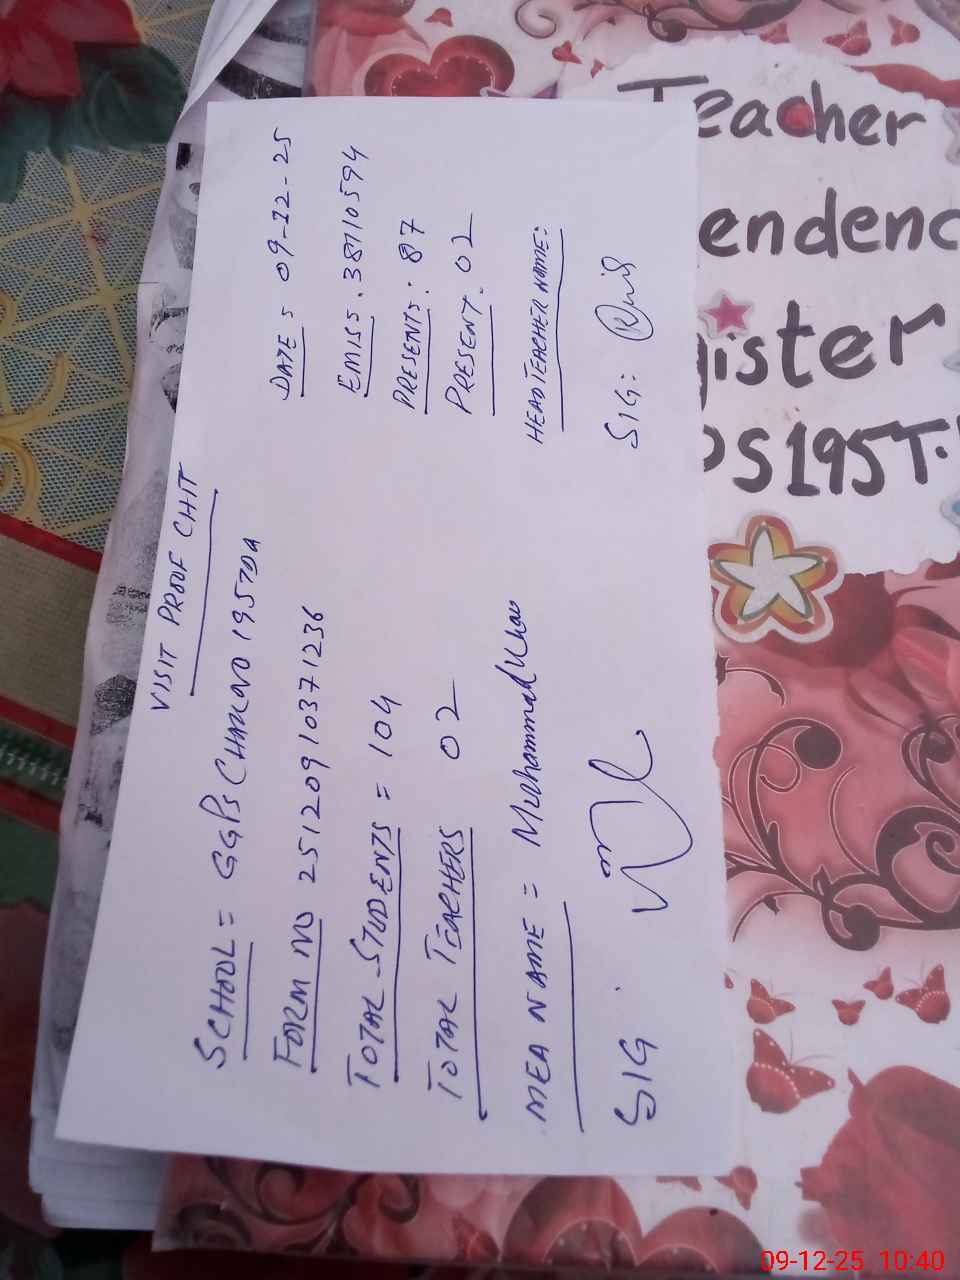 VISIT PROOF CHIT
DATE = 09-12-25
SCHOOL = GGPS CHAK NO 195TDA
EMIS = 38710594
FORM NO 25120910371236
PRESENTS: 87
TOTAL STUDENTS = 104
PRESENT: 02
TOTAL TEACHERS 02
HEADTEACHER NAME:
MEA NAME = Muhammad Khan
SIG:
SIG.
Teacher
endenc
ister
PS195T.
09-12-25 10:40